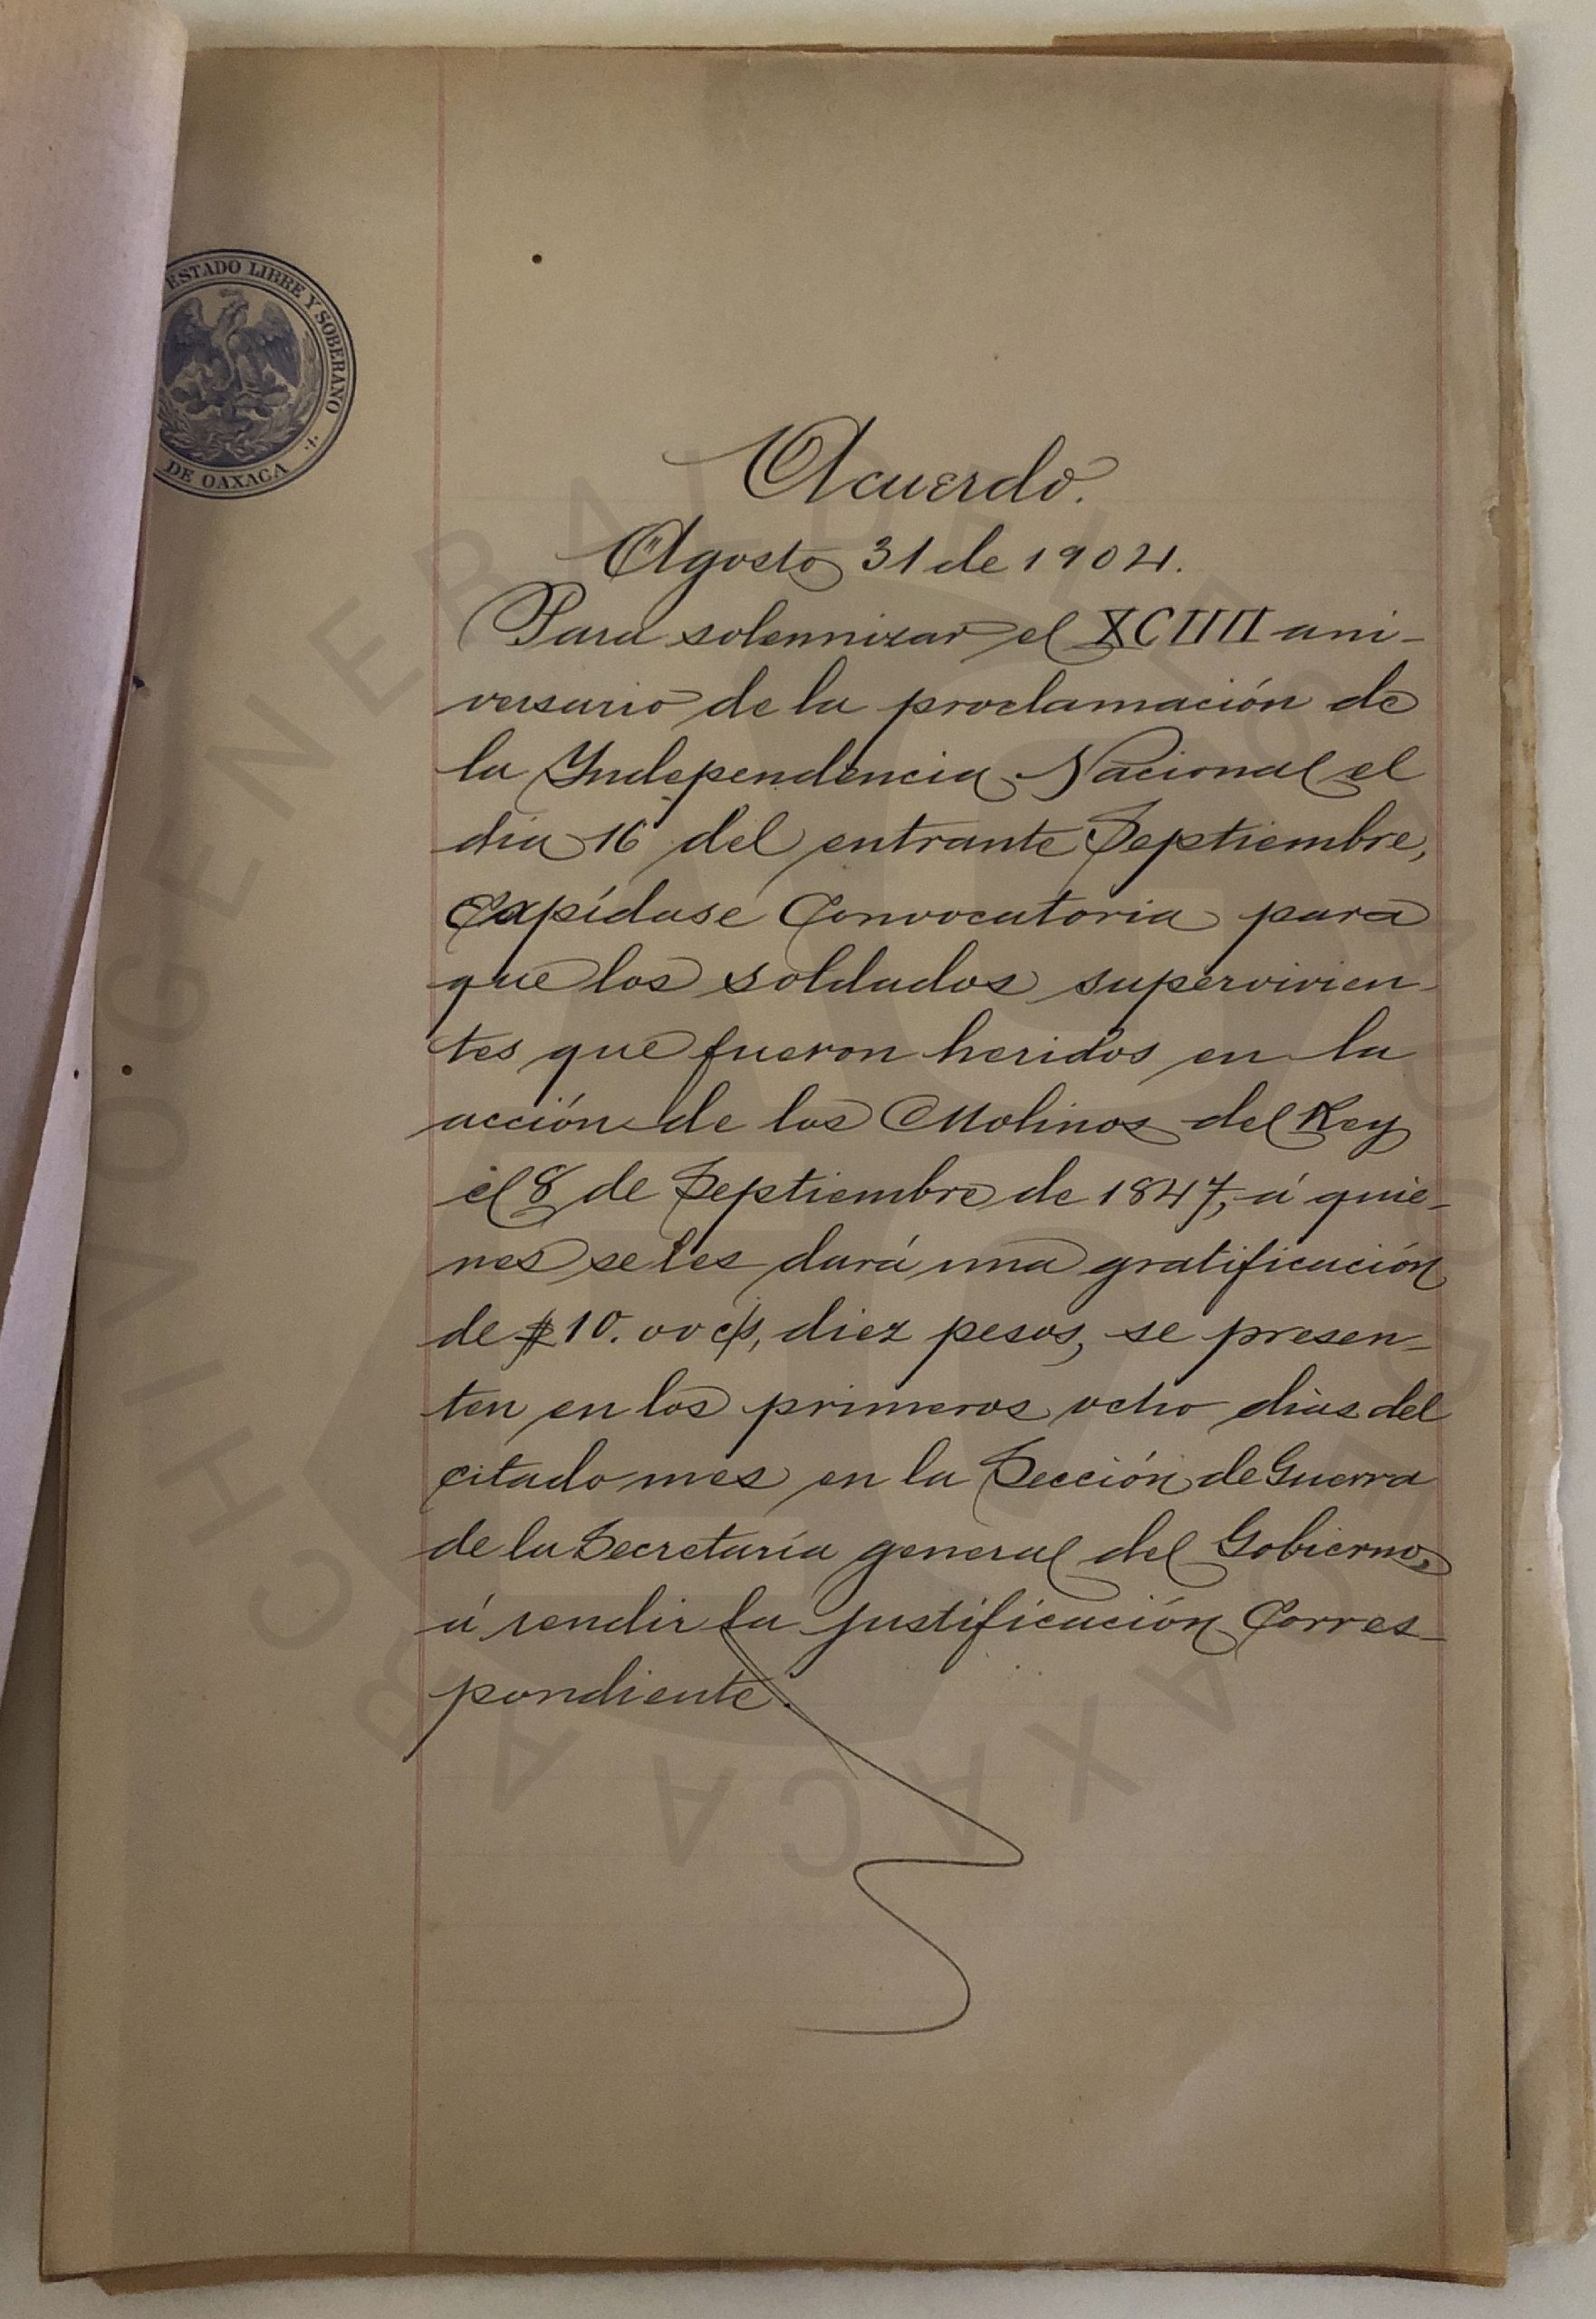 ESTADO LIBRE Y SOBERANO
DE OAXACA
Acuerdo.
Agosto 31 de 1904.
Para solemnizar el XCIIII ani-
versario de la proclamación de
la Yndependencia Nacional el
día 16 del entrante Septiembre,
expídase Convocatoria para
que los soldados supervivien-
tes que fueron heridos en la
acción de los Molinos del Rey
el 8 de Septiembre de 1847, á quie-
nes se les dará una gratificación
de $10.00 cs, diez pesos, se presen-
ten en los primeros ocho dias del
citado mes en la Sección de Guerra
de la Secretaría general del Gobierno,
á rendir la justificación Corres-
pondiente.
ARCHIVO GENERAL DEL ESTADO DE OAXACA